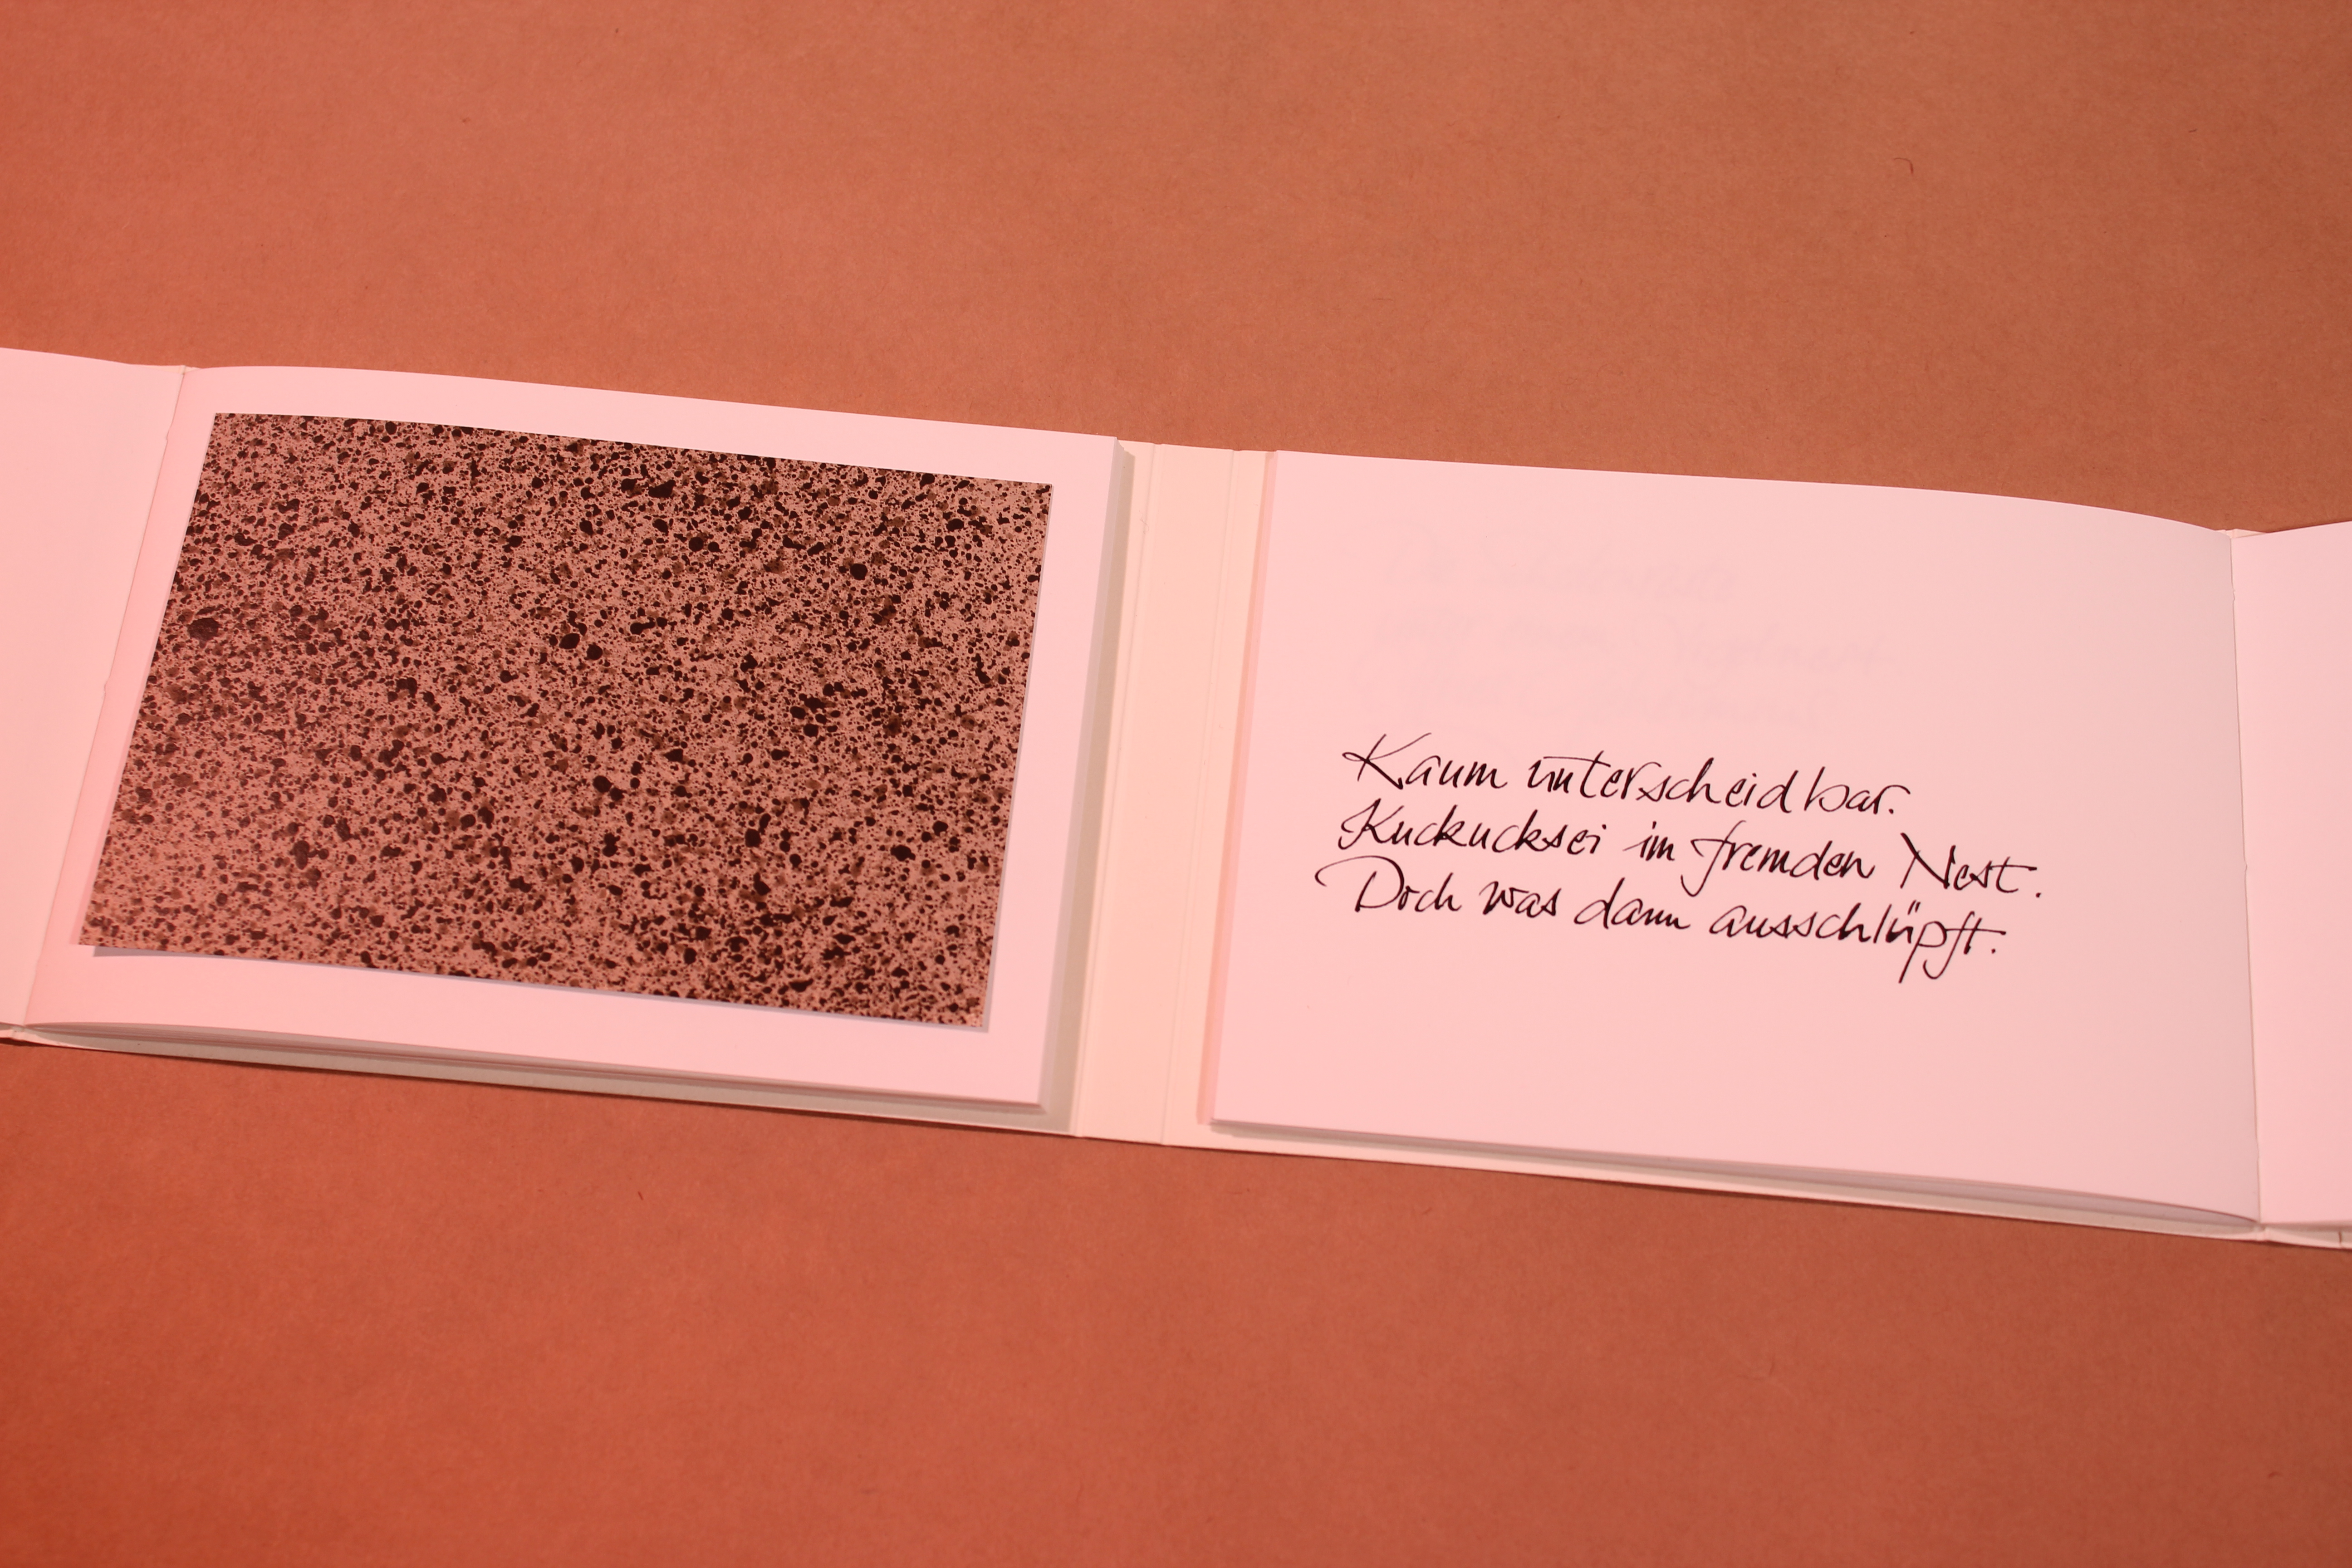 Kaum unterscheidbar.
Kuckucksei im fremden Nest.
Doch was dann ausschlüpft.